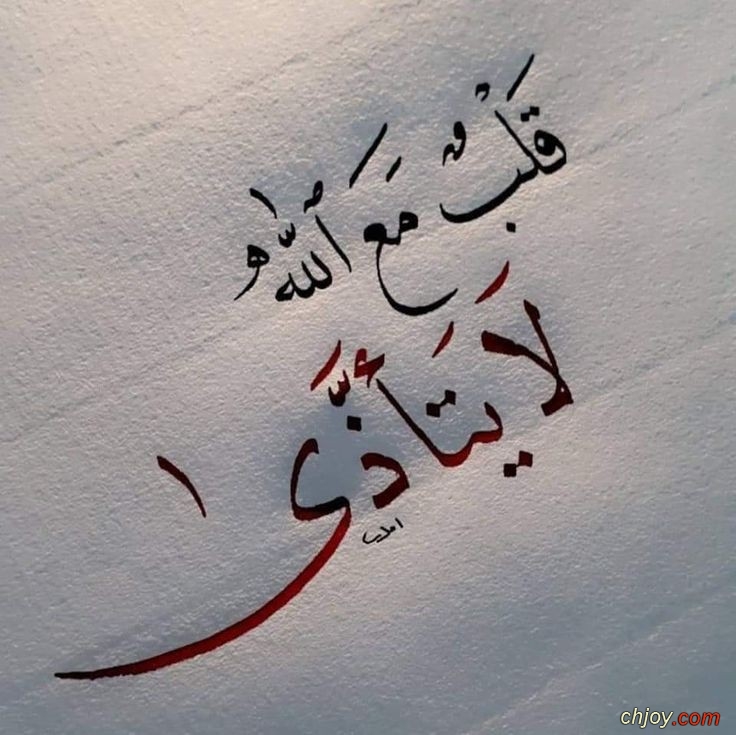 قَلْبٌ مَعَ ٱللَّه
لَا يَتَأَذَّى
chjoy.com